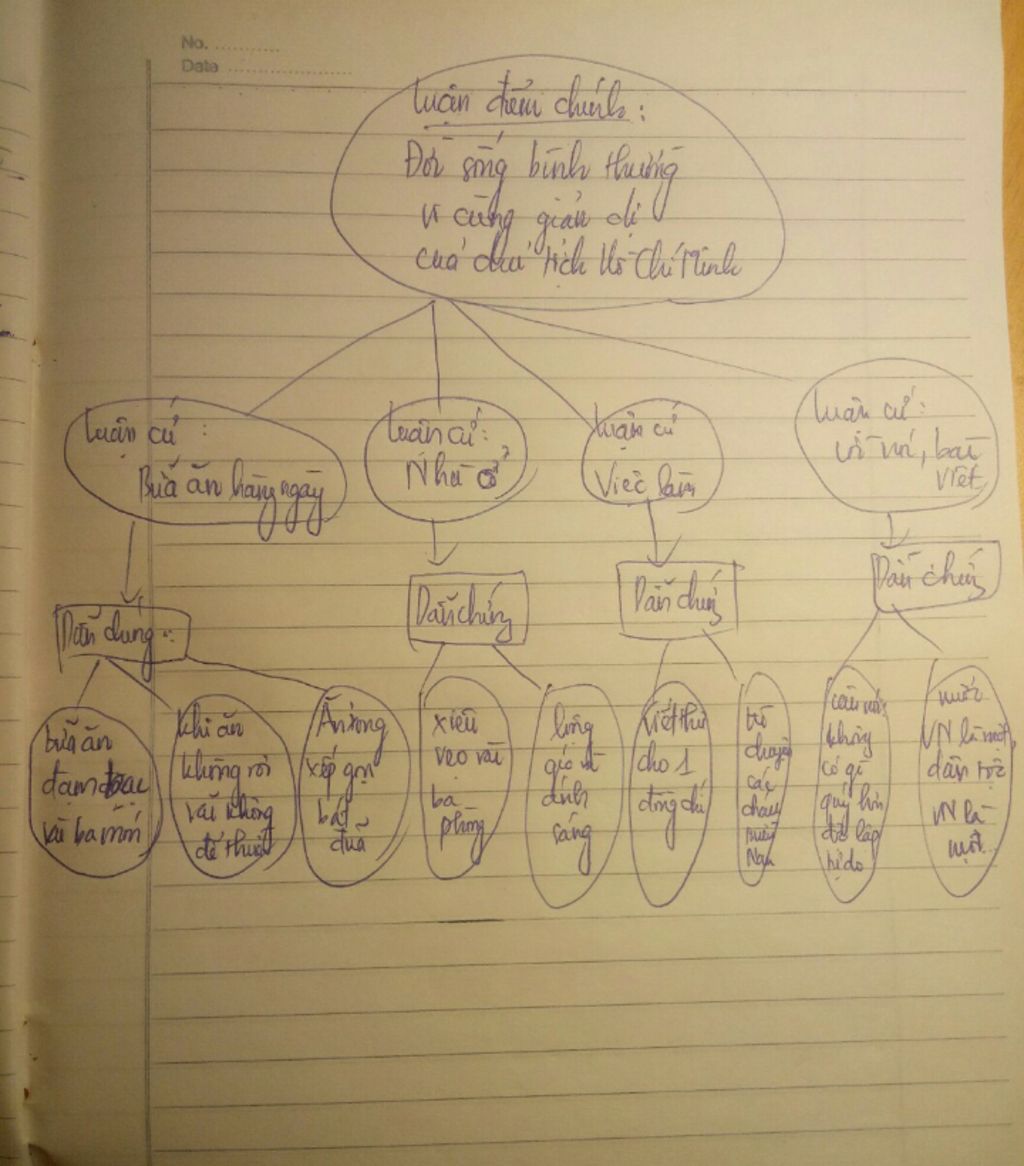 No. ............
Date ......................
Luận điểm chính :
Đời sống bình thường
vô cùng giản dị
của chủ tịch Hồ Chí Minh
Luận cứ :
Bữa ăn hàng ngày
Luận cứ :
Nhà ở
Luận cứ
Việc làm
Luận cứ :
lời nói, bài
viết
Dẫn chứng :
Dẫn chứng
Dẫn chứng
Dẫn chứng
bữa ăn
đạm bạc
vài ba món
khi ăn
không rơi
vãi không
để thừa
Ăn xong
xếp gọn
bát
đũa
xiêu
vẹo vài
ba
phòng
lộng
gió và
ánh
sáng
viết thư
cho 1
đồng chí
trò
chuyện
các
cháu
miền
Nam
câu nói:
không
có gì
quý hơn
độc lập
tự do
nước
VN là một,
dân tộc
VN là
một...